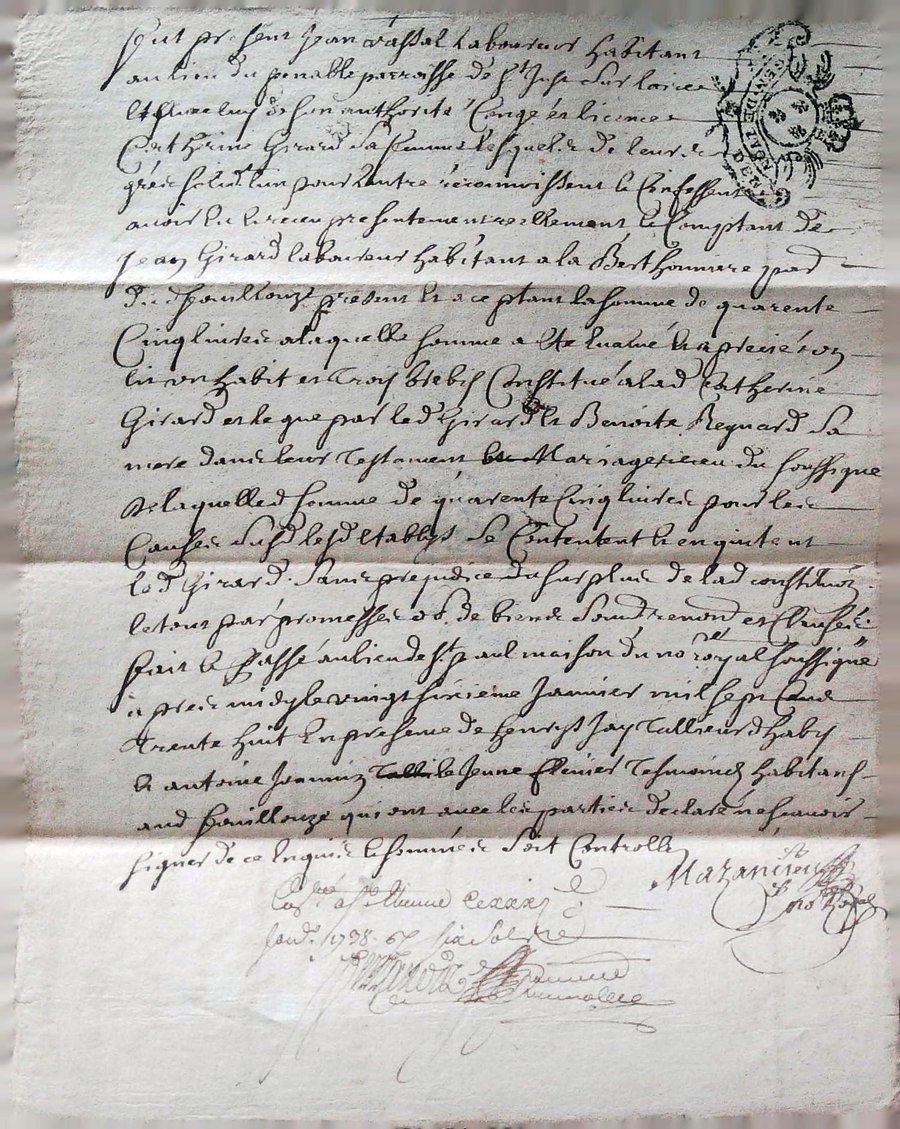 fut présent Jean Vassal Laboureur habitant
au lieu du penable parroisse de St Just sur loire
Et avec luy de son authorité Congé et licence
Catherine Girard sa femme lesquels de leurs
grés solid. l'un pour l'autre réconnoissent & Confessent
avoir eu & receu présentement réellement & Comptant de
Jean Girard laboureur habitant a la Berthonniere par
du dpouillouze présent & acceptant la somme de quarente
Cinq livres a laquelle somme a Eté Evalué & aprecié son
lit son habit et Trois brebis Constitué a lad Catherine
Girard Et ce que par led Girard & Benoite Reynard sa
mere dans leur Testament Mariage receu du soussigné
De laquelle d somme de quarente Cinq livres pour les
Causes susd lesd Etablys se Contentent & en quitent
le d Girard. Sans préjudice du surplus de lad constitúon
le tout par promesses ob. de biens soud renond et Clauses
fait & Passé au lieu de St paul maison du no.re royal soussigné
apres midy le vingt sixieme Janvier mil sept Cent
Trente huit En présence de Henrys Jay Tallieur d'haby
& antoine Jeannin le Jeune Témoins habitans
aud pouillouze qui ont avec les parties déclaré ne scavoir
signer de ce Enquis & sommés Soit Controllé
Mazancieu
no.re Royal
DE LYON
Con.llé a St Etienne le xxxj
Janv. 1738. six Sols